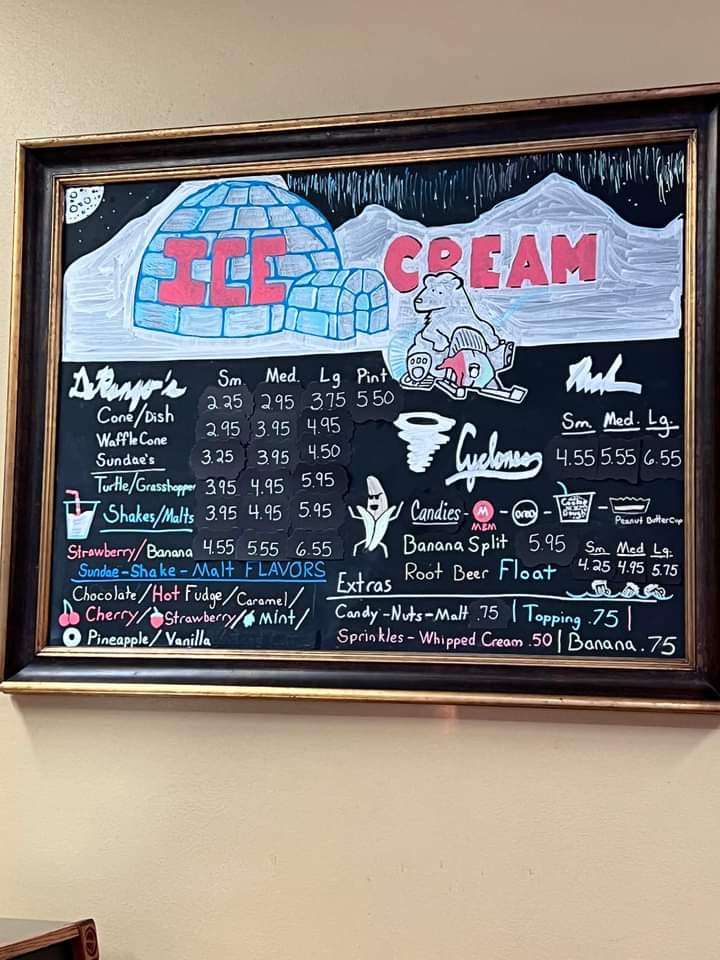 ICE CREAM
DeRango's Sm Med. Lg Pint
Cone/Dish 2.25 2.95 3.75 5.50
Waffle Cone 2.95 3.95 4.95
Sundae's 3.25 3.95 4.50
Turtle/Grasshopper 3.95 4.95 5.95
Shakes/Malts 3.95 4.95 5.95
Strawberry/Banana 4.55 5.55 6.55
Sundae-Shake-Malt FLAVORS
Chocolate/Hot Fudge/Caramel/
Cherry/Strawberry/Mint/
Pineapple/Vanilla
Sm. Med. Lg.
Cyclones 4.55 5.55 6.55
Candies - M M&M - OREO - Cookie Dough - Peanut Butter Cup
Banana Split 5.95
Sm Med Lg.
Root Beer Float 4.25 4.95 5.75
Extras
Candy-Nuts-Malt .75 | Topping .75 |
Sprinkles-Whipped Cream .50 | Banana .75